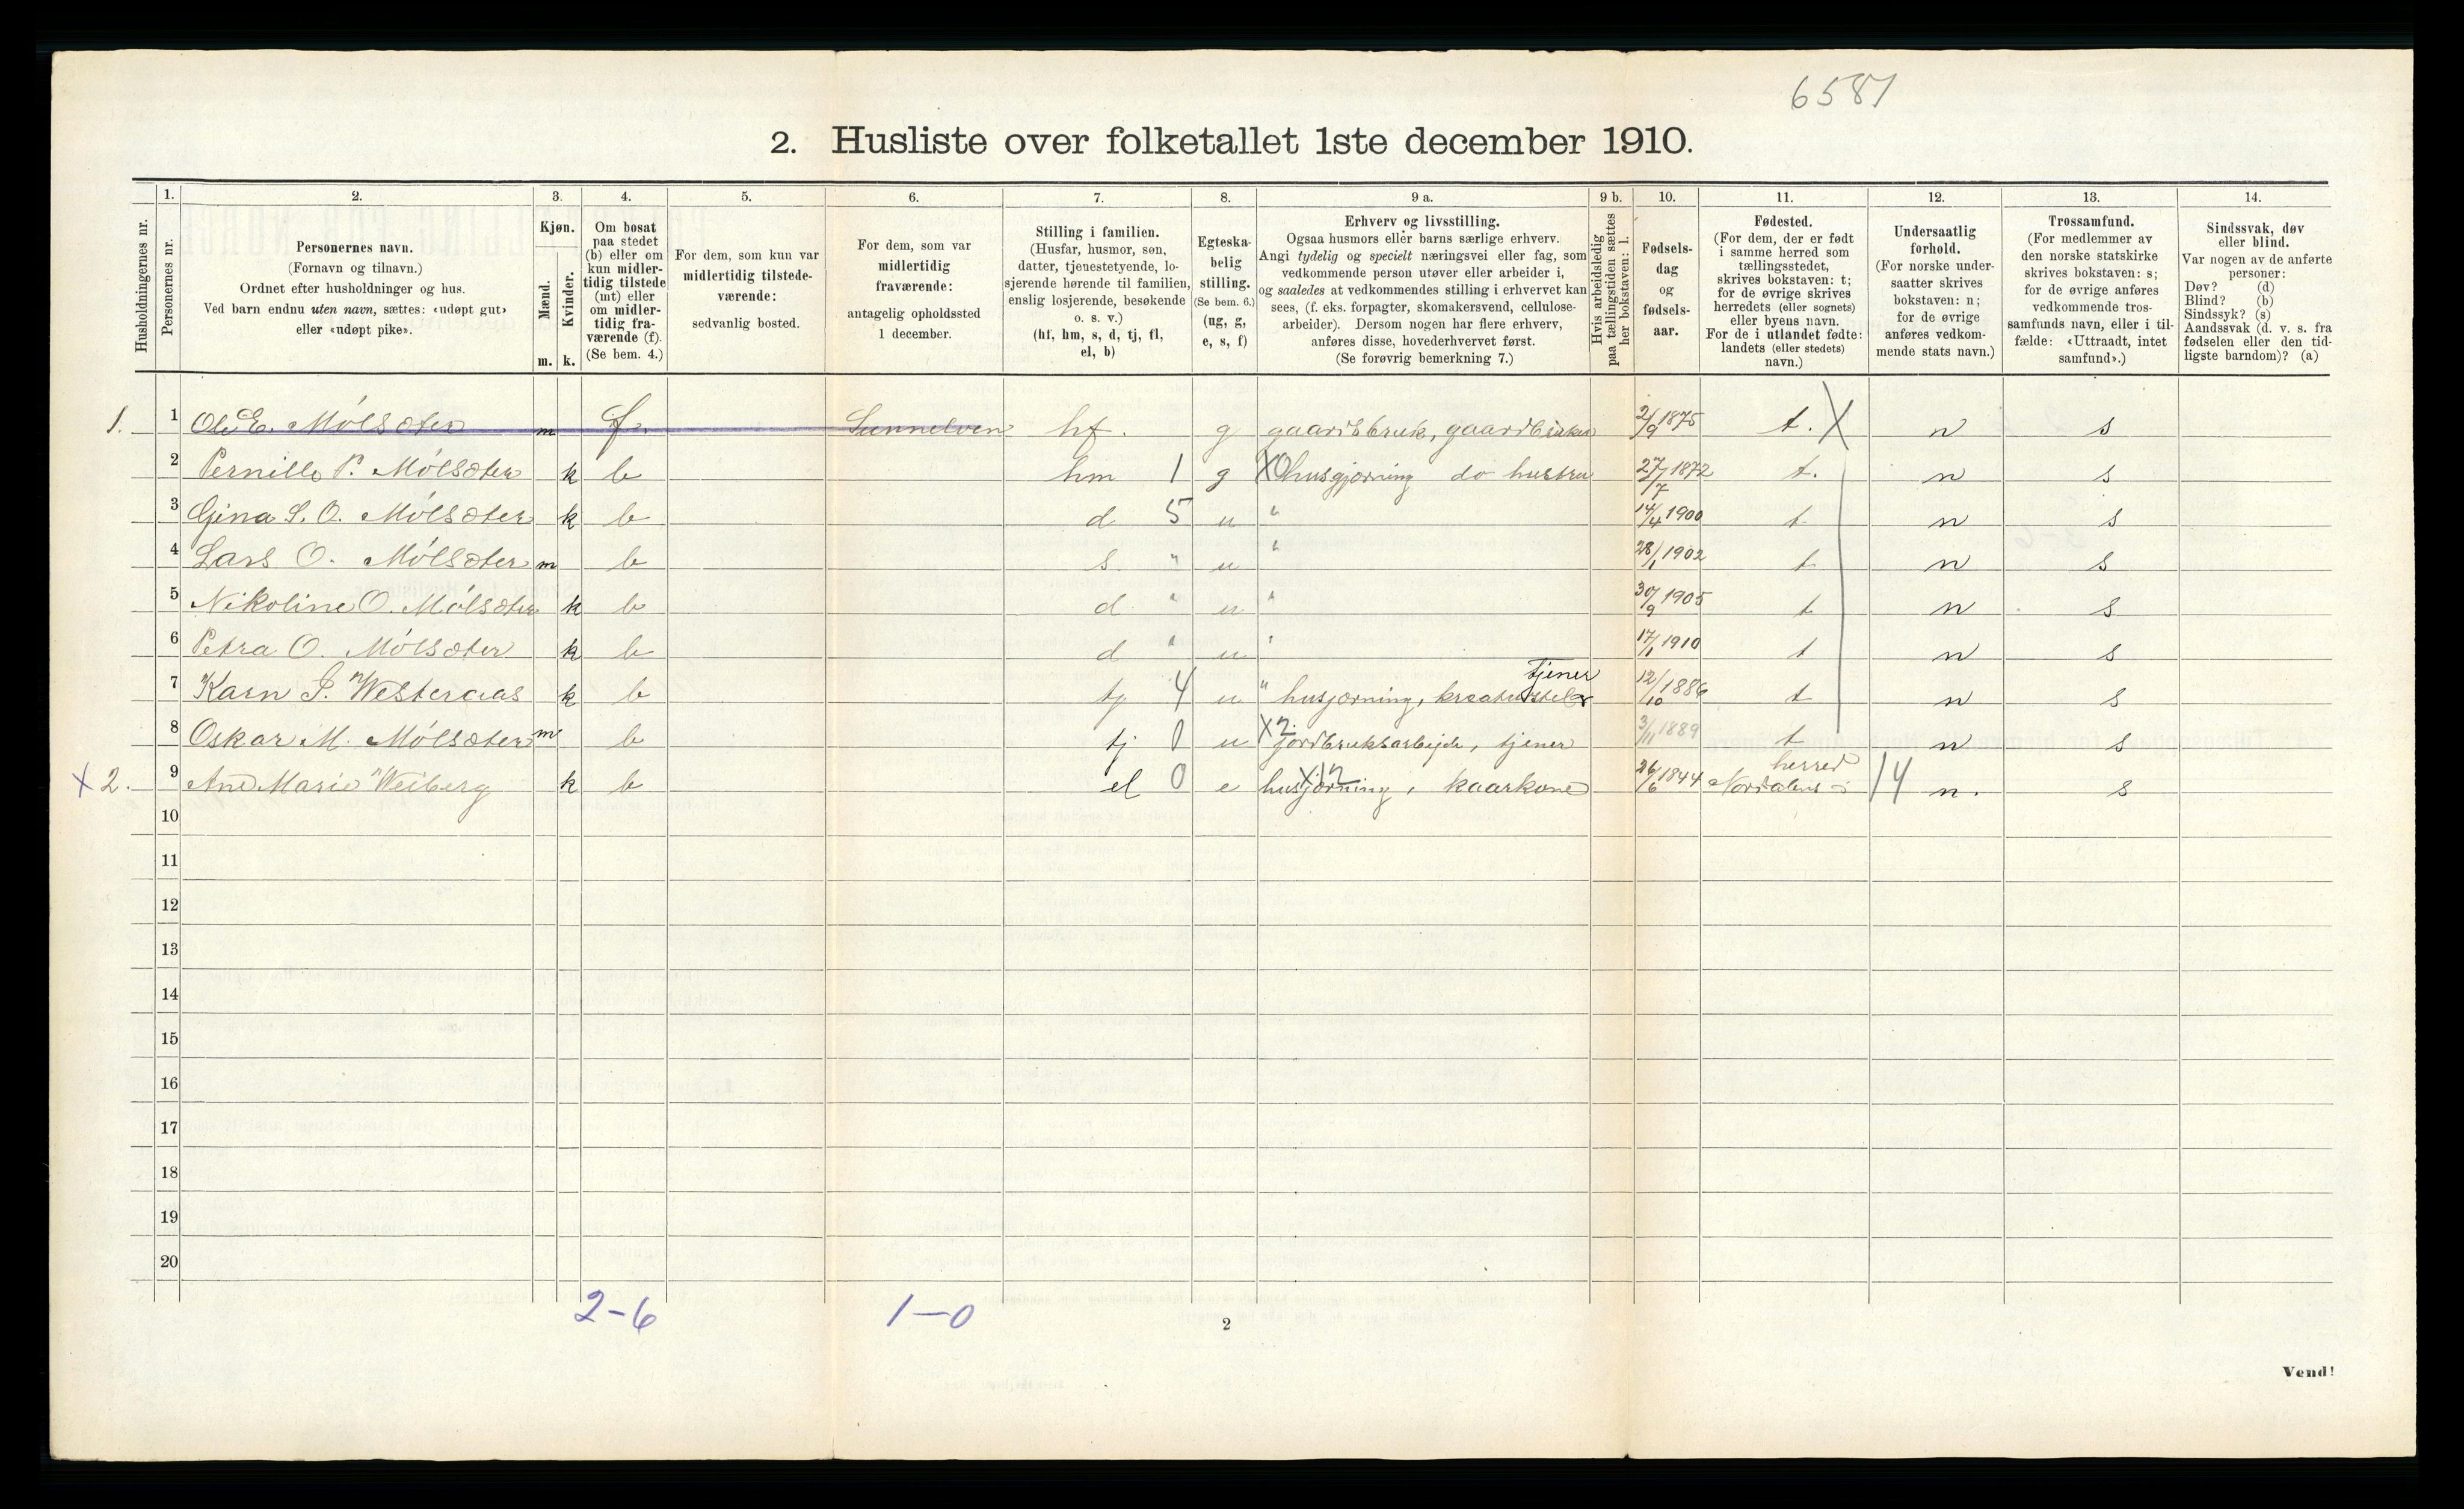 6587
2. Husliste over folketallet 1ste december 1910.
1. 2. 3. 4. 5. 6. 7. 8. 9 a. 9 b. 10. 11. 12. 13. 14.
Husholdningernes nr.
Personernes nr.
Personernes navn.
(Fornavn og tilnavn.)
Ordnet efter husholdninger og hus.
Ved barn endnu uten navn, sættes: «udøpt gut»
eller «udøpt pike».
Kjøn.
Mænd.
Kvinder.
m. k.
Om bosat
paa stedet
(b) eller om
kun midler-
tidig tilstede
(mt) eller
om midler-
tidig fra-
værende (f).
(Se bem. 4.)
For dem, som kun var
midlertidig tilstede-
værende:
sedvanlig bosted.
For dem, som var
midlertidig
fraværende:
antagelig opholdssted
1 december.
Stilling i familien.
(Husfar, husmor, søn,
datter, tjenestetyende, lo-
sjerende hørende til familien,
enslig losjerende, besøkende
o. s. v.)
(hf, hm, s, d, tj, fl,
el, b)
Egteska-
belig
stilling.
(Se bem. 6.)
(ug, g,
e, s, f)
Erhverv og livsstilling.
Ogsaa husmors eller barns særlige erhverv.
Angi tydelig og specielt næringsvei eller fag, som
vedkommende person utøver eller arbeider i,
og saaledes at vedkommendes stilling i erhvervet kan
sees, (f. eks. forpagter, skomakersvend, cellulose-
arbeider). Dersom nogen har flere erhverv,
anføres disse, hovederhvervet først.
(Se forøvrig bemerkning 7.)
Hvis arbeidsledig
paa tællingstiden sættes
her bokstaven: l.
Fødsels-
dag
og
fødsels-
aar.
Fødested.
(For dem, der er født
i samme herred som
tællingsstedet,
skrives bokstaven: t;
for de øvrige skrives
herredets (eller sognets)
eller byens navn.
For de i utlandet fødte:
landets (eller stedets)
navn.)
Undersaatlig
forhold.
(For norske under-
saatter skrives
bokstaven: n;
for de øvrige
anføres vedkom-
mende stats navn.)
Trossamfund.
(For medlemmer av
den norske statskirke
skrives bokstaven: s;
for de øvrige anføres
vedkommende tros-
samfunds navn, eller i til-
fælde: «Uttraadt, intet
samfund».)
Sindssvak, døv
eller blind.
Var nogen av de anførte
personer:
Døv? (d)
Blind? (b)
Sindssyk? (s)
Aandssvak (d. v. s. fra
fødselen eller den tid-
ligste barndom)? (a)
1. 1 Ole E. Mólsæter m f. Sunnelven hf. g gaardsbruk, gaardbruker 2/9 1875 t. X n s
2 Pernille P. Mólsæter k b hm 1 g X0 husgjærning do hustru 27/7 1872 t. n s
3 Gina S. O. Mólsæter k b d 5 u " 14/4 1900 t n s
4 Lars O. Mólsæter m b s. " u " 28/1 1902 t n s
5 Nikoline O. Mólsæter k b d " u " 30/9 1905 t n s
6 Petra O. Mólsæter k b d " u " 17/1 1910 t n s
tjener
7 Karn J. Westeraas k b tj 4 u " husjærning, kreaturstel 12/10 1886 t n s
8 Oskar M. Mólsæter m b tj 0 u X2. jordbruksarbejde, tjener 3/11 1889 t n s
herred
X 2. 9 Ane Marie Weiberg k b el 0 e X12 husjærning, kaarkone 26/6 1844 Nordalens 14 n. s
10
11
12
13
14
15
16
17
18
19
20
2-6 1-0
2
Vend!